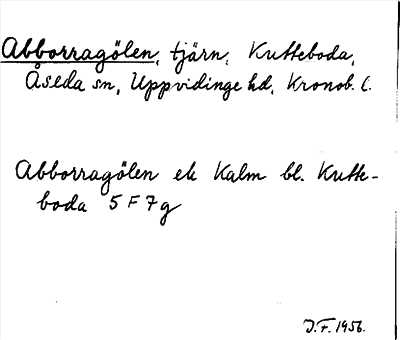 Abborragölen, tjärn, Kutteboda,
Åseda sn, Uppvidinge hd, Kronob. l.
Abborragölen ek Kalm bl. Kutte-
boda 5 F 7 g
J.F. 1956.